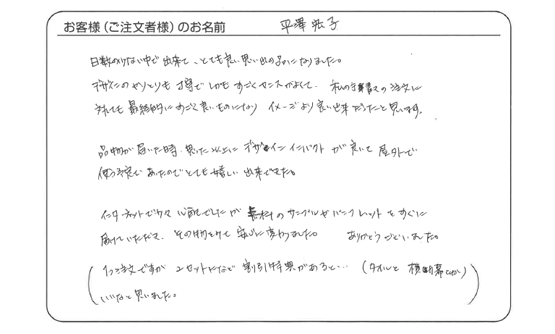 お客様（ご注文者様）のお名前 平澤 宏子
日数のない中で 出来て、とても良い思い出の品になりました。
デザインのやりとりも 丁寧で しかも すごくセンスがよくて、私の 注文に
対しても 最終的に すごく良いものになり イメージより良い出来だったと思います。
品物が届いた時、思った以上に デザイン インパクトが良いて 屋外で
使う予定であったのでとても嬉しい出来でした。
インターネットで 心配でしたが 無料のサンプルやパンフレットをすぐに
届けていただき、その物を見て 安心に変わりました。 ありがとうございました。
（1つ注文ですが 2セットになど 割引特典があると…（タオルと 横断幕とか）
いいなと思いました。）